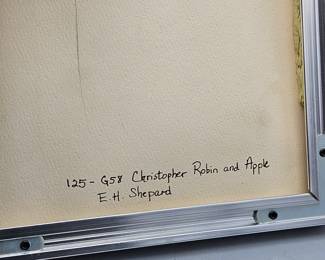 125 - G58 Christopher Robin and Apple
E.H. Shepard